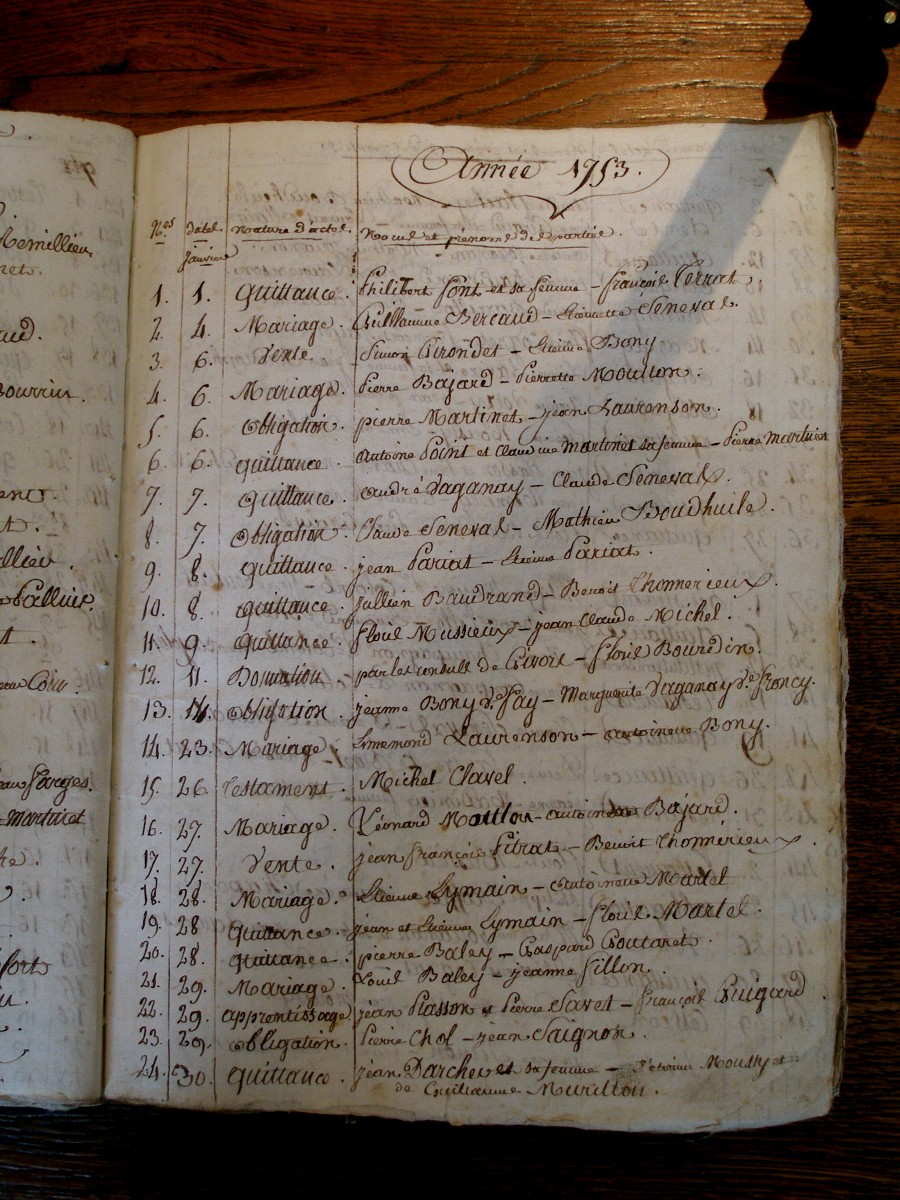 Année 1753.
Nos dates nature d'actes Noms et prénoms des parties.
janvier
1. 1. Quittance. Philibert font et sa femme - françois Terrat
2. 4. Mariage. Guillaume Bercaud - Seneval
3. 6. Vente Simon Girondet - Etienne Bony
4. 6. Mariage. Pierre Bajard - Pierrette Moulton.
5. 6. Obligation. pierre Martinet - jean Laurenson.
6. 6. quittance Antoine Point et Claudine Martinet sa femme - Pierre Martinet
7. 7. quittance. andré Vaganay - Claude Seneval.
8. 7. Obligation Claude Seneval - Mathieu Boudhuile.
9. 8. quittance jean Pariat - Etienne Pariat.
10. 8. quittance. jullien Baudrand - Benoit Thomerieux.
11. 9. quittance. floris Mussieux - jean Claude Michel.
12. 11. Donnation. par les consuls de Givors - floris Bourdin.
13. 14. obligation. jeanne Bony de fay - Marguerite Vaganay de froncy.
14. 23. Mariage. Ennemond Laurenson - antoinette Bony.
15. 26. Testament. Michel Clavel.
16. 27. Mariage. Léonard Moullon - Bajard.
17. 27. Vente. jean françois fitrat - Benoit Thomerieux.
18. 28. Mariage. Etienne Lymain - Antoinette Martel
19. 28 quittance. jean et Etienne Lymain - floris Martel.
20. 28. quittance. pierre Baley - Gaspard Goutaret.
21. 29. Mariage. Louis Baley - jeanne fillon.
22. 29. apprentissage jean Plasson et Pierre Savet - françois Guigard.
23. 29. obligation. Pierre Chol - jean Saignon.
24. 30. quittance. jean Darches et sa femme - Mously et
de Guillaume Murillon.
Remillieu
aud.
Bourrin.
t.
allieu.
Palluis.
t.
Coin.
farges.
Martinet